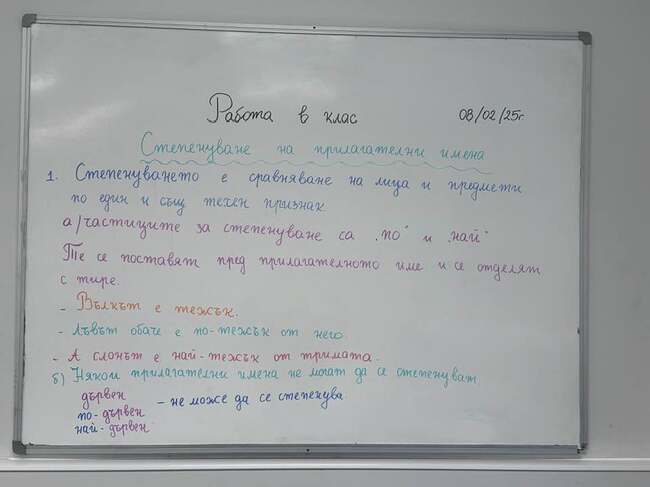 Работа в клас 08/02/25г.
Степенуване на прилагателни имена
1. Степенуването е сравняване на лица и предмети
по един и същ техен признак
а/частиците за степенуване са „по“ и „най“
Те се поставят пред прилагателното име и се отделят
с тире.
- Вълкът е тежък.
- Лъвът обаче е по-тежък от него.
- А слонът е най-тежък от тримата.
б) Някои прилагателни имена не могат да се степенуват
дървен
по-дървен - не може да се степенува
най-дървен